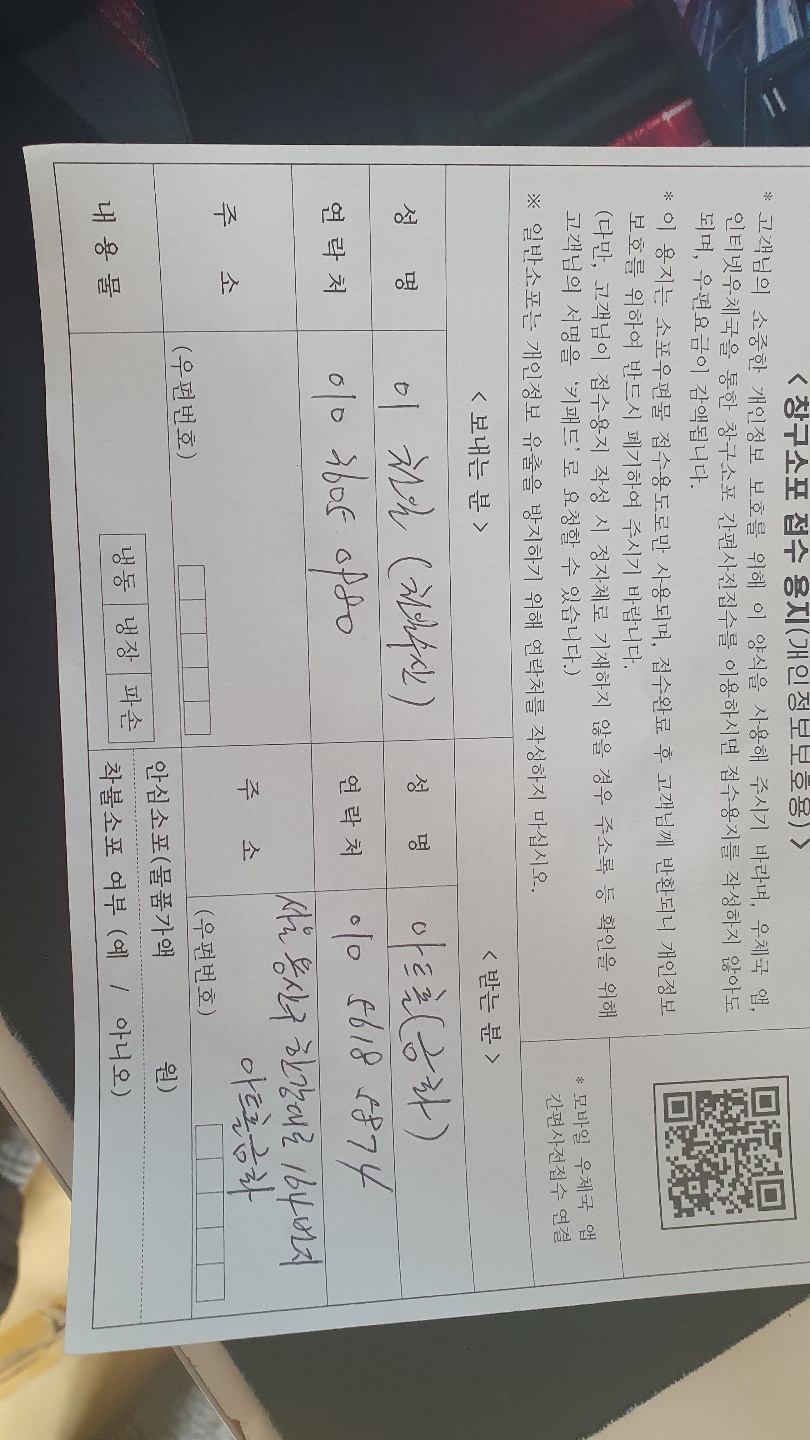 < 창구소포 접수 용지(개인정보보호용) >
* 고객님의 소중한 개인정보 보호를 위해 이 양식을 사용해 주시기 바라며, 우체국 앱,
인터넷우체국을 통한 창구소포 간편사전접수를 이용하시면 접수용지를 작성하지 않아도
되며, 우편요금이 감액됩니다.
* 이 용지는 소포우편물 접수용도로만 사용되며, 접수완료 후 고객님께 반환되니 개인정보
보호를 위하여 반드시 폐기하여 주시기 바랍니다.
(다만, 고객님이 접수용지 작성 시 정자체로 기재하지 않을 경우 주소록 등 확인을 위해
고객님의 서명을 '키패드'로 요청할 수 있습니다.)
※ 일반소포는 개인정보 유출을 방지하기 위해 연락처를 작성하지 마십시오.
* 모바일 우체국 앱
간편사전접수 연결
< 보내는 분 >
성 명
이
연 락 처
010
주 소
(우편번호)
내 용 물
냉동 냉장 파손
< 받는 분 >
성 명
아트존(공좌)
연 락 처
010 5618 5874
주 소
서울 용산구 한강대로 164번지
(우편번호)
안심소포(물품가액 원)
착불소포 여부 (예 / 아니오)